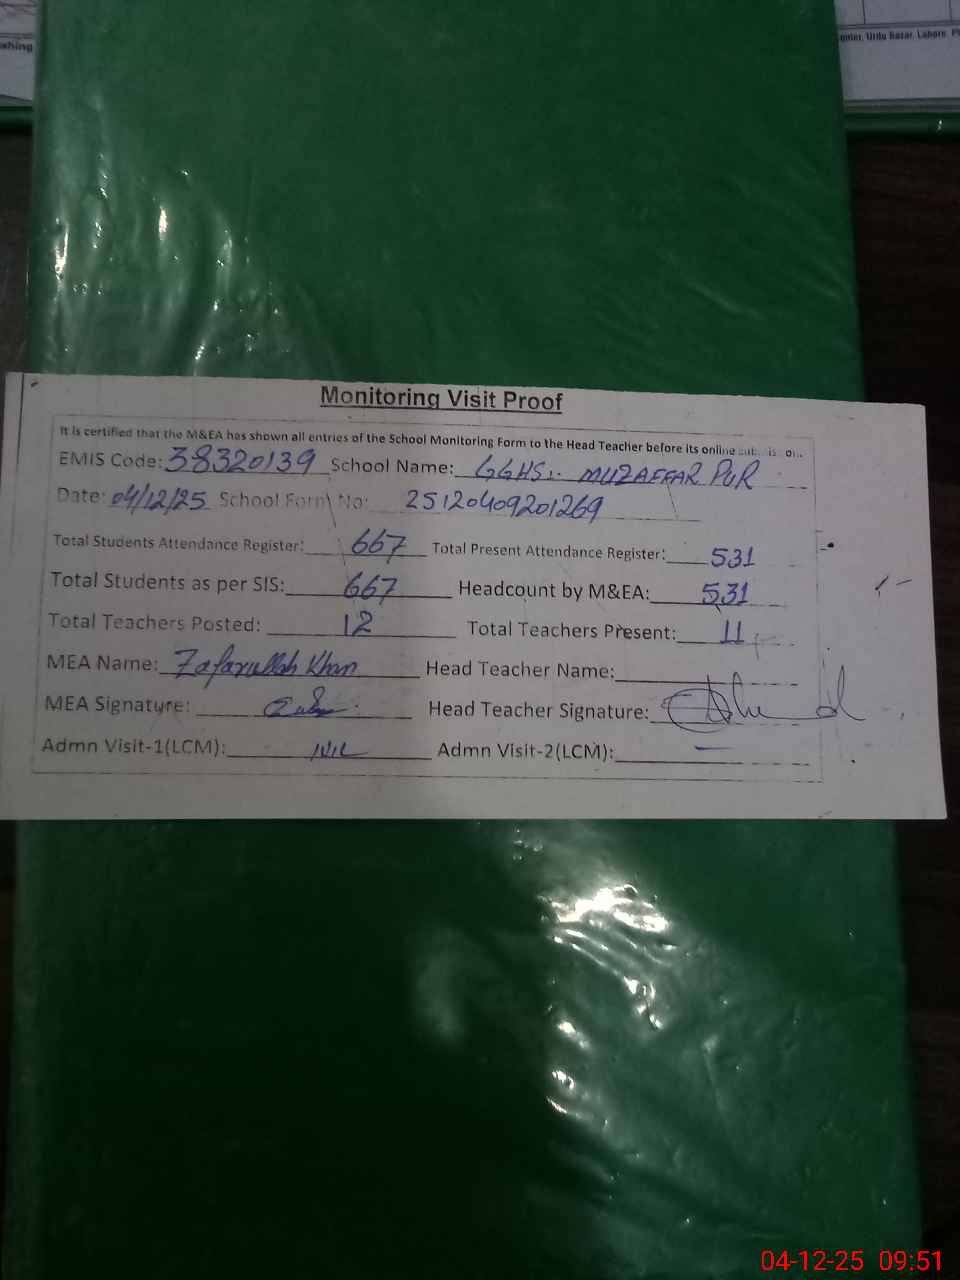 enter, Urdu Bazar, Lahore.
Monitoring Visit Proof
It is certified that the M&EA has shown all entries of the School Monitoring Form to the Head Teacher before its online
EMIS Code: 38320139 School Name: GGHS. MUZAFFAR PUR
Date: 04/12/25 School Form No: 25120409201269
Total Students Attendance Register: 667 Total Present Attendance Register: 531
Total Students as per SIS: 667 Headcount by M&EA: 531
Total Teachers Posted: 12 Total Teachers Present: 11
MEA Name: Zafarullah Khan Head Teacher Name:
MEA Signature: Head Teacher Signature:
Admn Visit-1(LCM): NIL Admn Visit-2(LCM): —
04-12-25 09:51